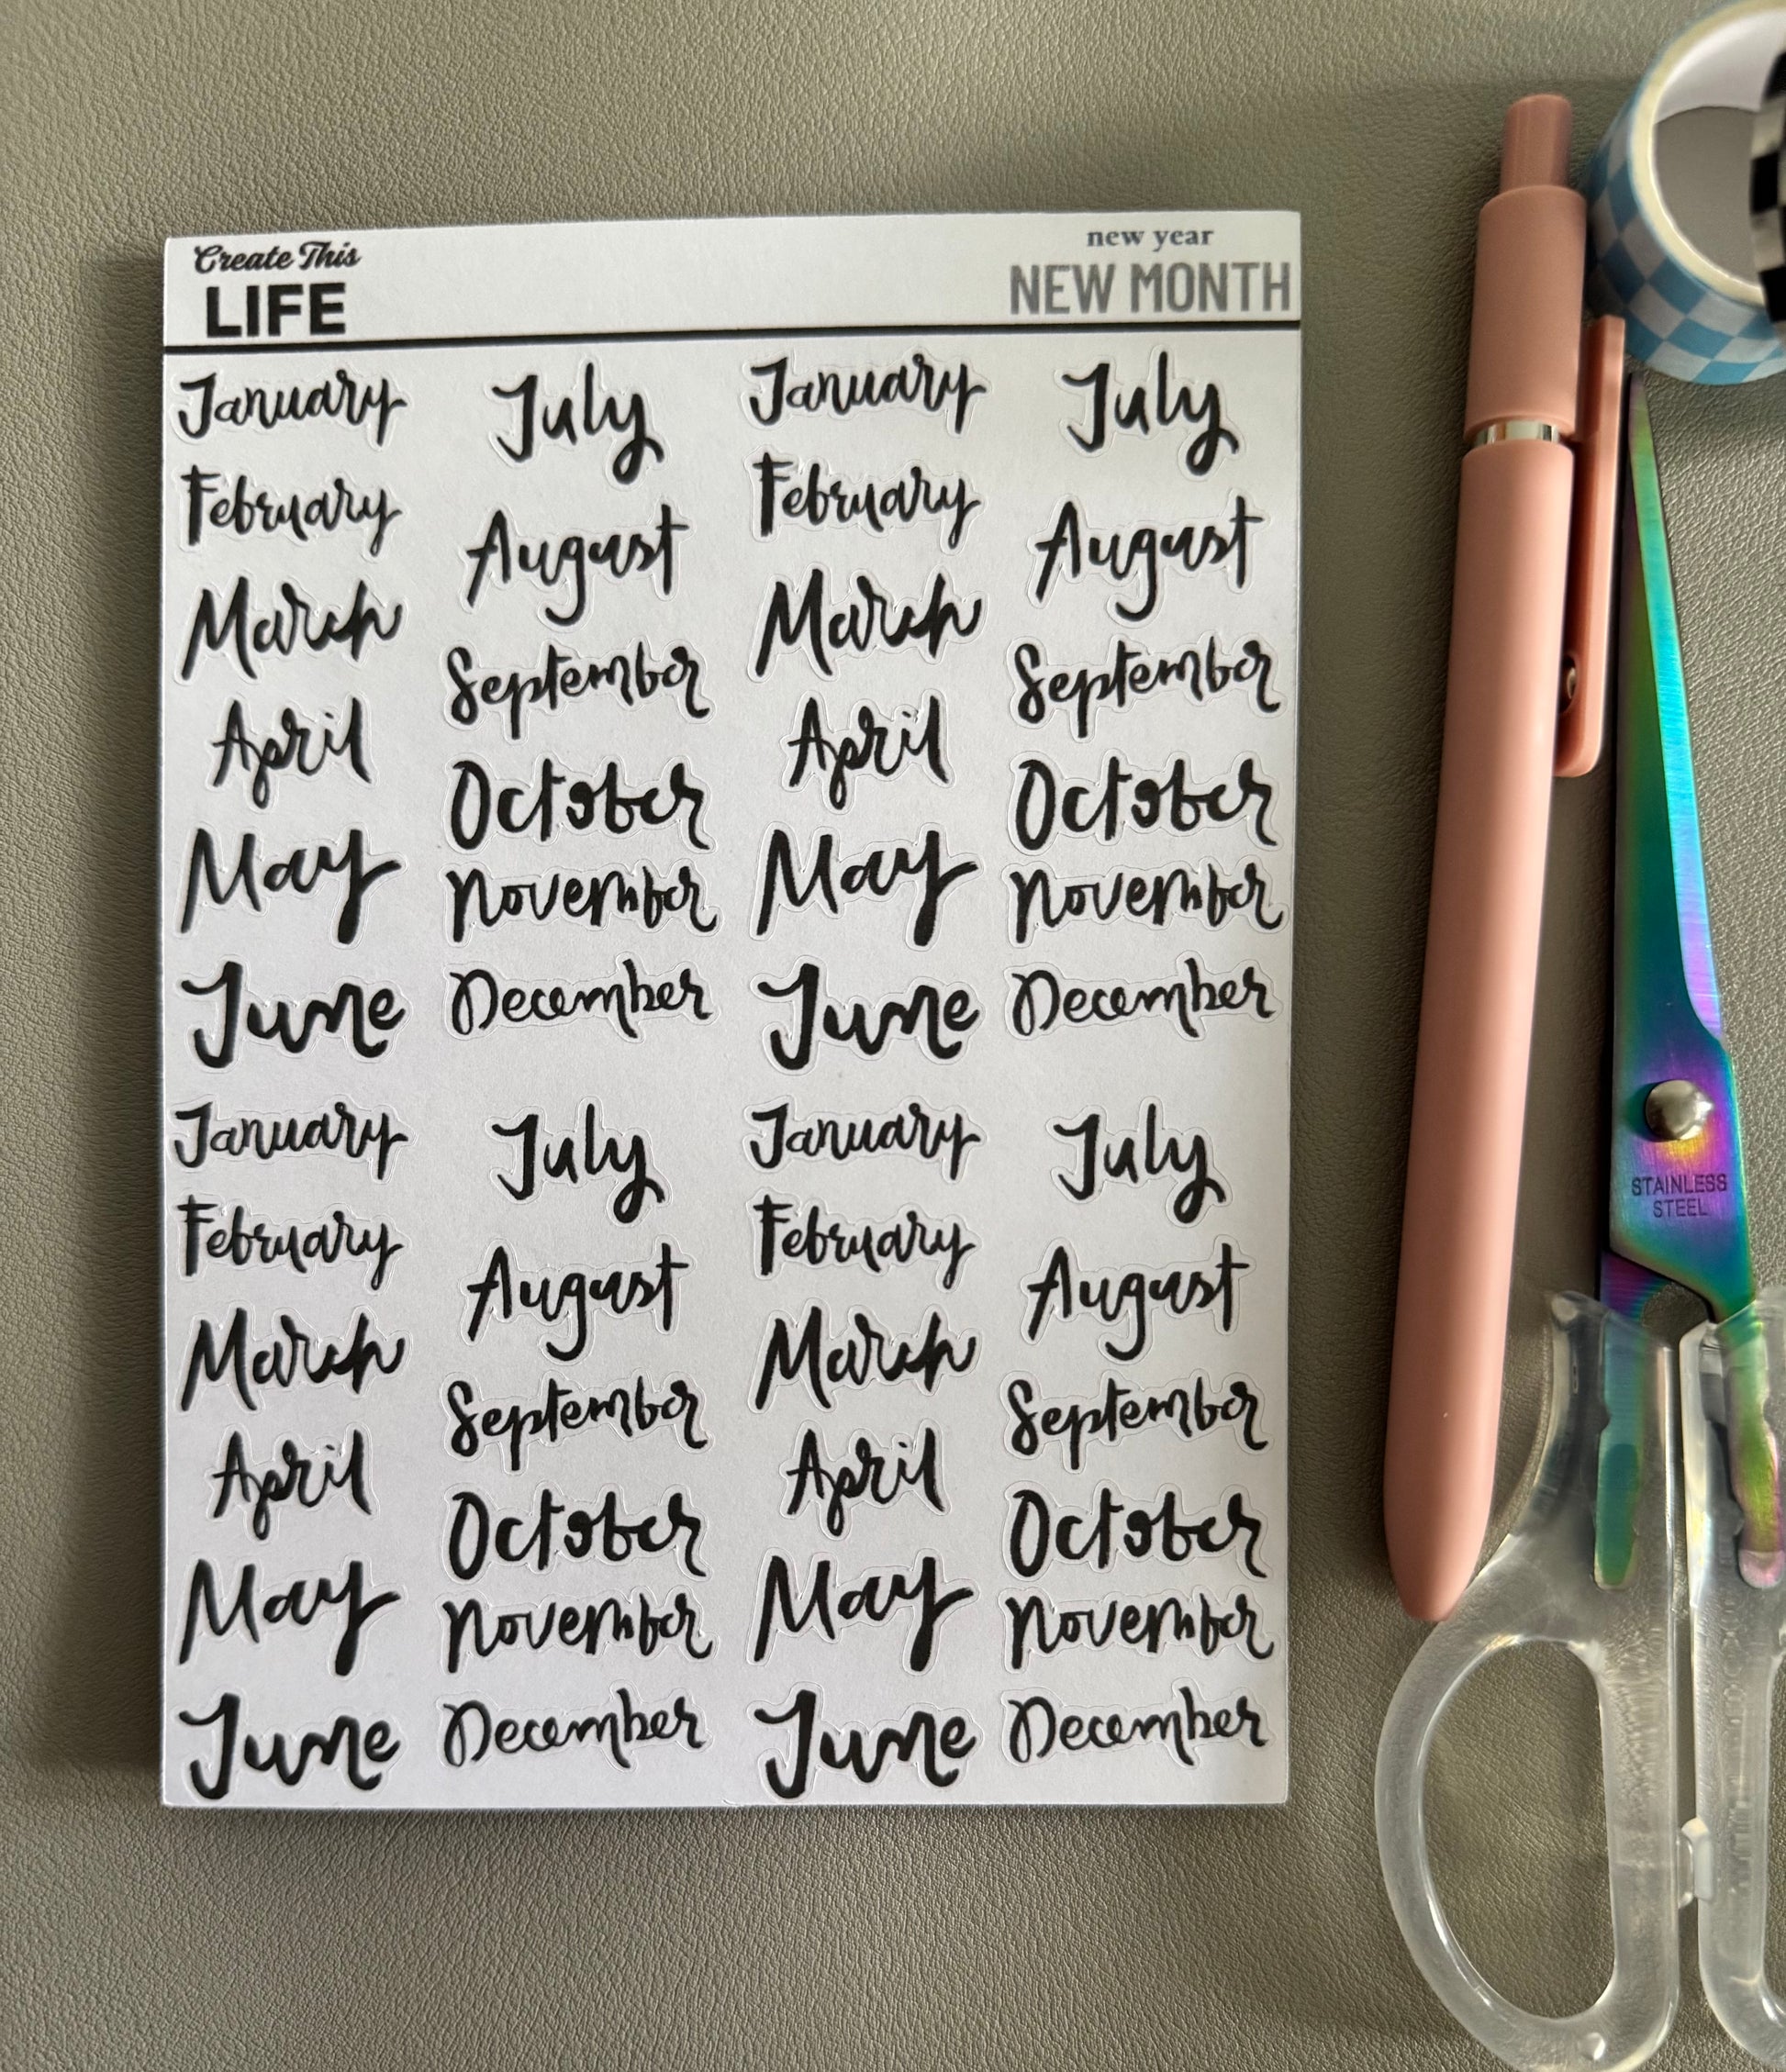 Create This
LIFE
new year
NEW MONTH
January
February
March
April
May
June
July
August
September
October
November
December
January
February
March
April
May
June
July
August
September
October
November
December
January
February
March
April
May
June
July
August
September
October
November
December
January
February
March
April
May
June
July
August
September
October
November
December
STAINLESS
STEEL